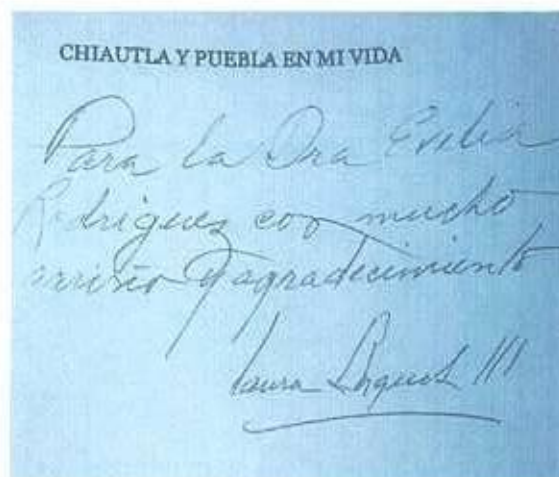 CHIAUTLA Y PUEBLA EN MI VIDA
Para la Dra Evelia
Rodriguez con mucho
cariño y agradecimiento
Laura